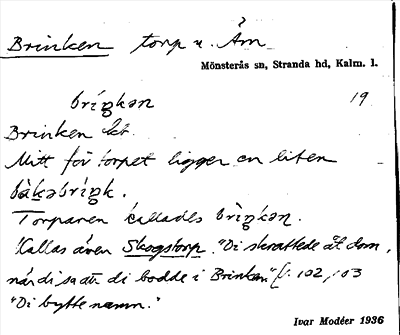 Brinken torp u. Åm
Mönsterås sn, Stranda hd, Kalm. l.
brìŋkən 19
Brinken
Mitt för torpet ligger en liten
bàkəbrìŋk.
Torparen kallades brìŋkən.
Kallas även Skogstorp. "Di skrattede åt dom,
när di sa att di bodde i Brinken" [s. 102, 103
"Di bytte namn."
Ivar Modéer 1936